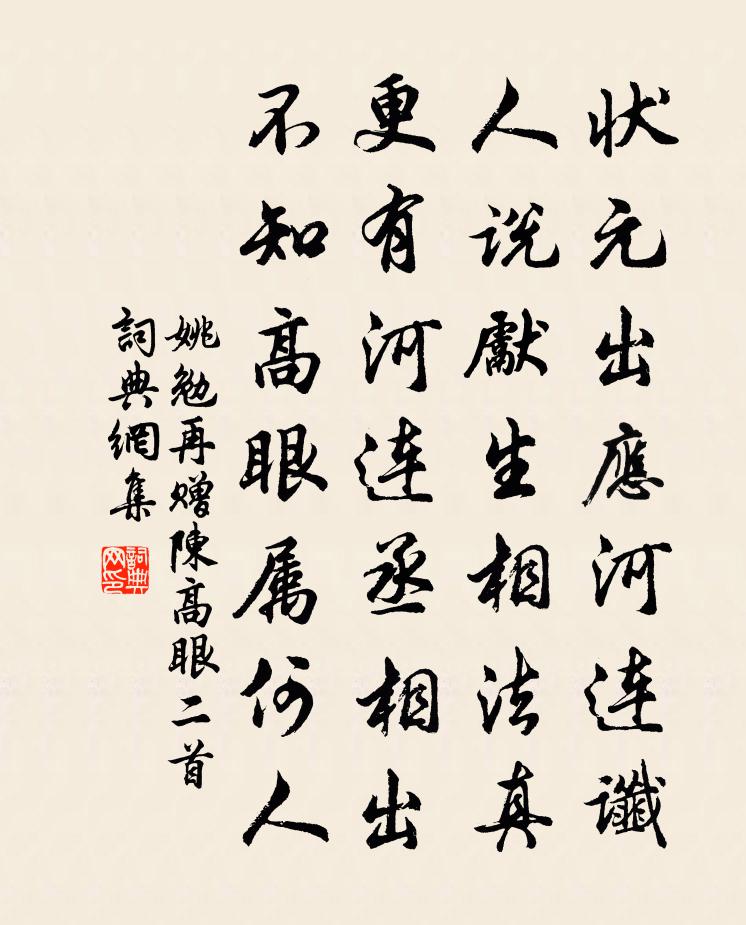 状元出應河连谶
人说獻生相法真
更有河连丞相出
不知高眼属何人
姚勉再赠陳高眼二首
詞典網集
詞典网印